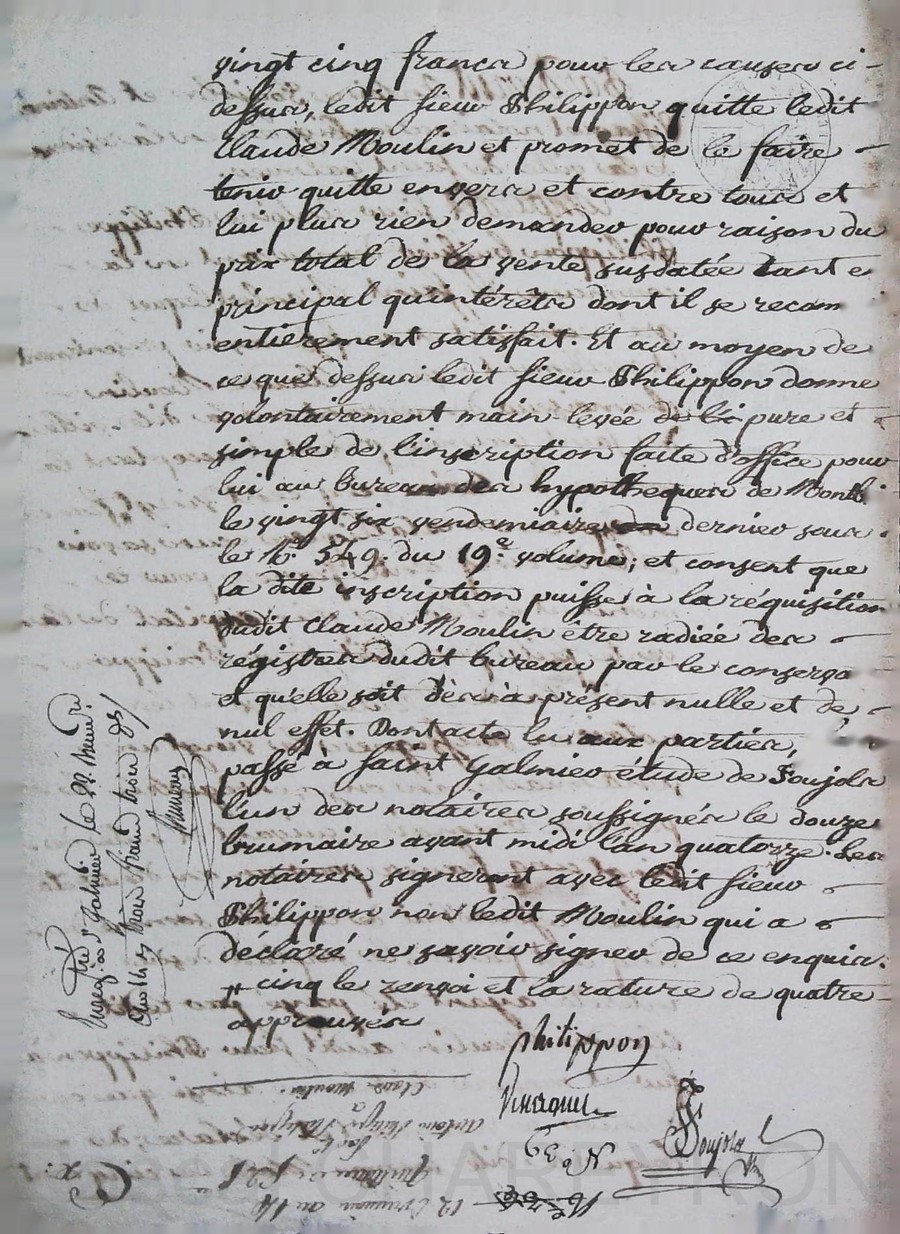 vingt cinq francs pour les causes ci-
dessus, ledit sieur Philippon quitte ledit
Claude Moulin et promet de le faire
tenir quitte envers et contre tous et
lui plus rien demander pour raison du
prix total de la vente susdatée tant e
principal qu'intérêts dont il se recon
entièrement satisfait. Et au moyen de
ce que dessus ledit sieur Philippon donne
volontairement main levée pure et
simple de l'inscription faite d'office pour
lui au bureau des hypotheques de Montb
le vingt six vendemiaire dernier sous
le No 549. du 19e. volume, et consent que
la dite inscription puisse à la réquisition
dudit Claude Moulin être radiée des
régistres dudit bureau par le conserva
et qu'elle soit dès à présent nulle et de
nul effet. Dont acte lu aux parties,
passé à Saint Galmier étude de Soujols
l'un des notaires soussignés le douze
brumaire avant midi l'an quatorze. Les
notaires signeront avec ledit sieur
Philippon non ledit Moulin qui a
déclaré ne savoir signer de ce enquis.
cinq le renvoi et la rature de quatre
approuvés
philippon
Soujols
Enregistré à St Galmier le 22 brum.re
trois francs trois
No 39
Claude Moulin
Antoine Philippon
Quittance de
12 brumaire an 14